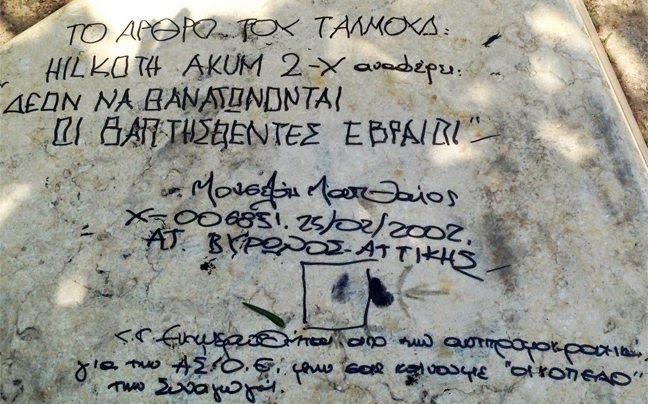 ΤΟ ΑΡΘΡΟ ΤΟΥ ΤΑΛΜΟΥΔ:
HILKOTH AKUM 2-X αναφέρει:
"ΔΕΟΝ ΝΑ ΘΑΝΑΤΩΝΟΝΤΑΙ
ΟΙ ΒΑΠΤΗΣΘΕΝΤΕΣ ΕΒΡΑΙΟΙ"
Ματθαίος
X-006851. 25/02/2002.
ΑΤ. ΒΥΡΩΝΟΣ-ΑΤΤΙΚΗΣ
από την
για την ΑΣ.Ο.Ε. σας κάνουμε "ΟΙΚΟΠΕΔΟ"
την Συναγωγή.